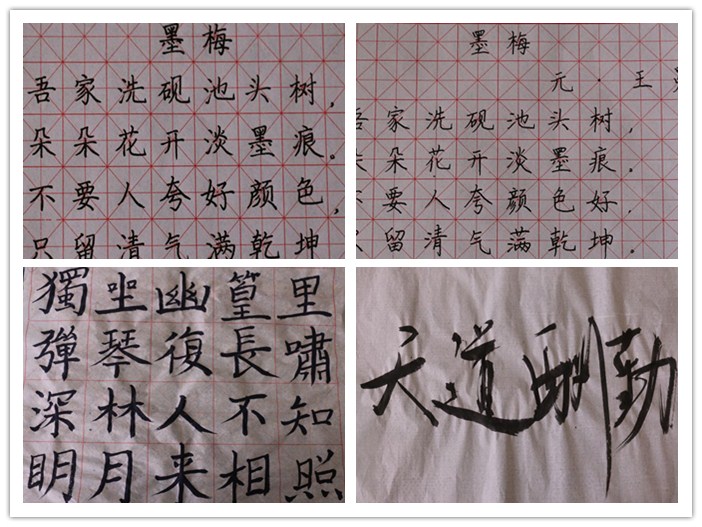 墨梅
吾家洗砚池头树,
朵朵花开淡墨痕。
不要人夸好颜色,
只留清气满乾坤
墨梅
元·王
吾家洗砚池头树,
朵花开淡墨痕.
不要人夸颜色好.
留清气满乾坤.
獨坐幽篁里
彈琴復長嘯
深林人不知
明月来相照
天道酬勤